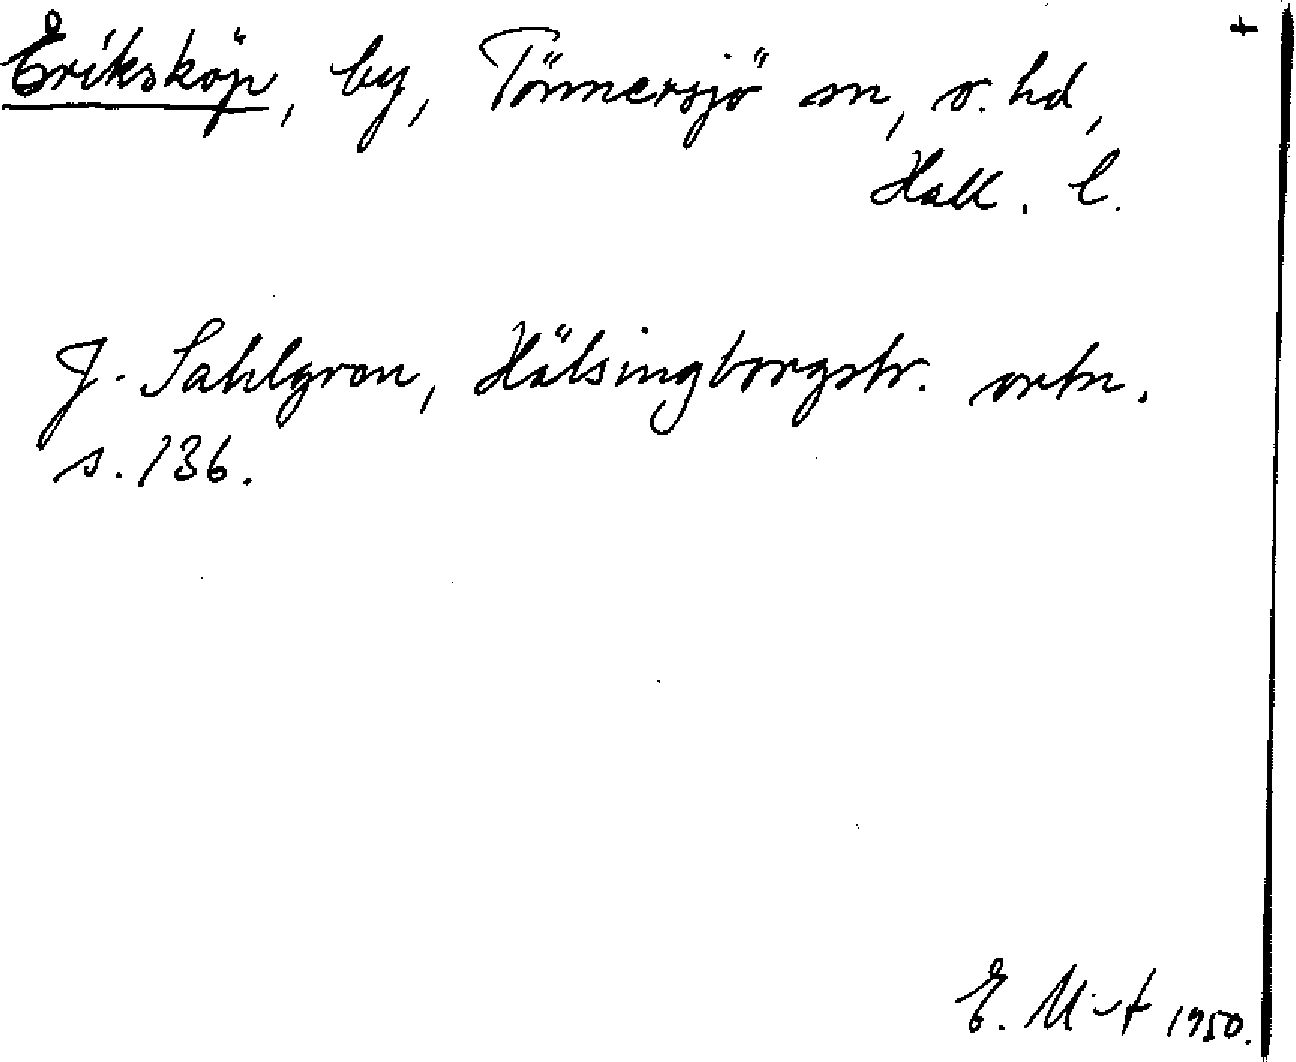 +
Eriksköp, by, Tönnersjö sn, s. hd,
Hall. l.
J. Sahlgren, Hälsingborgstr. ortn.
s. 136.
E. M-t 1950.